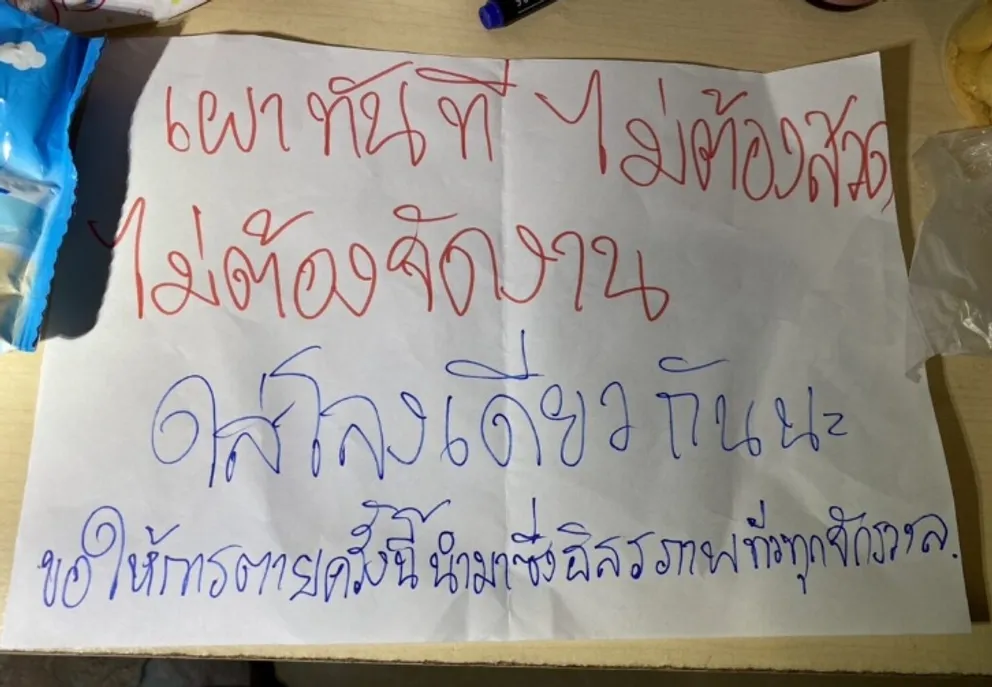 เผาทันที ไม่ต้องสวด
ไม่ต้องจัดงาน
ใส่โลงเดียวกันนะ
ขอให้การตายครั้งนี้นำมาซึ่งอิสรภาพทั่วทุกจักรวาล.